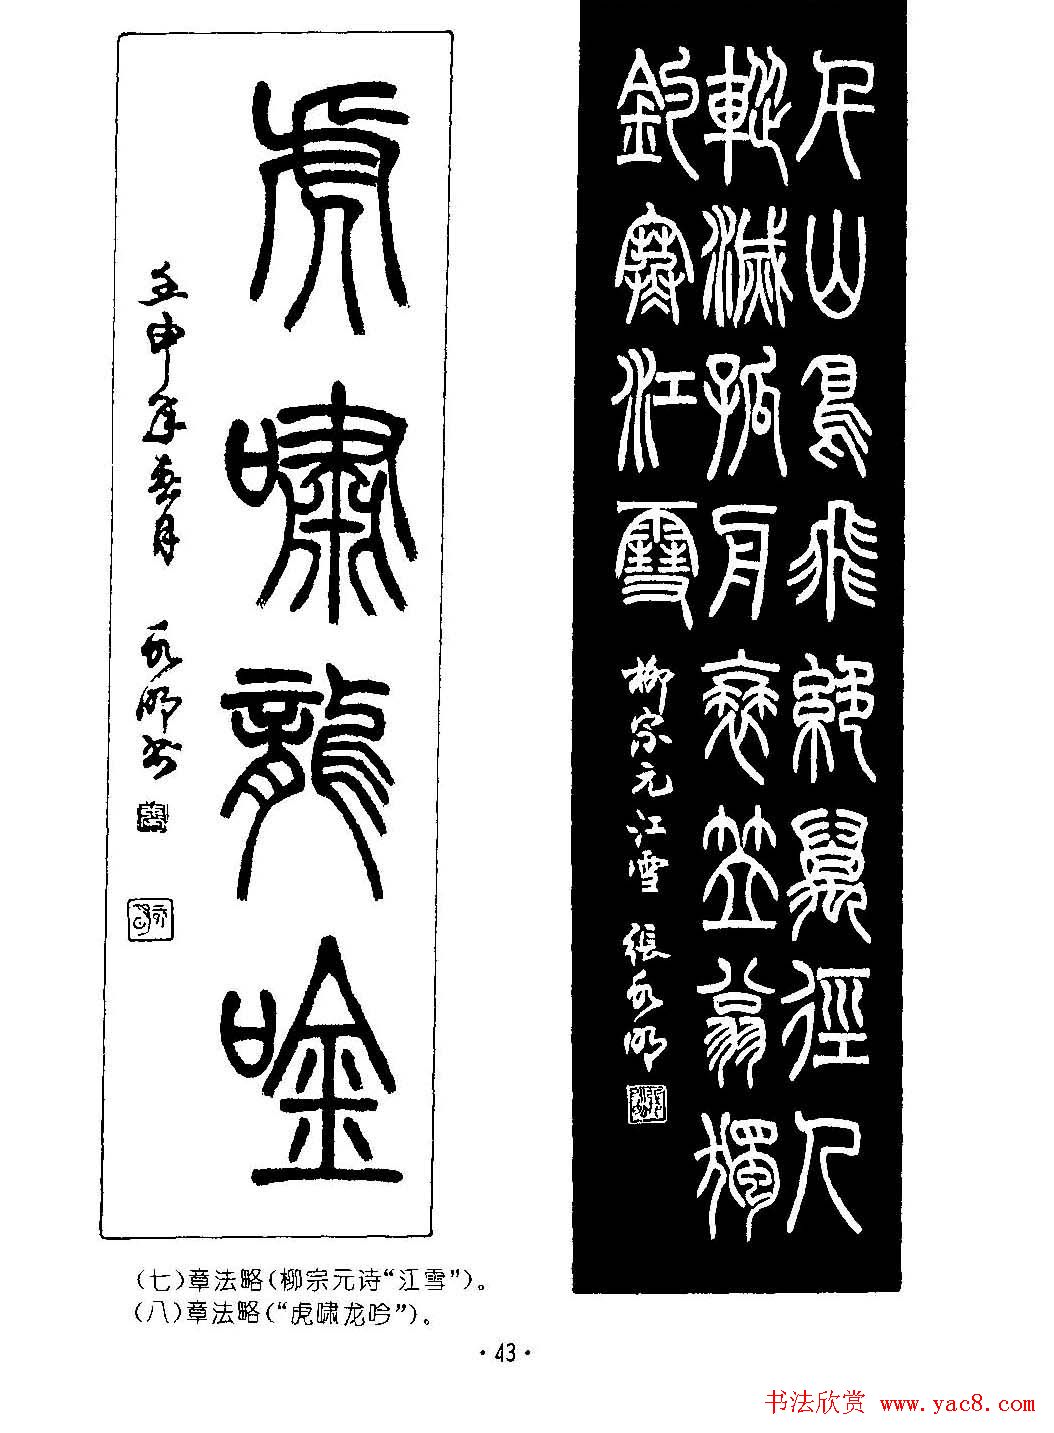 千山鳥飛絕萬徑人
蹤滅孤舟蓑笠翁獨
釣寒江雪
柳宗元江雪 張永明
虎嘯龍唫
壬申年春月 永明书
(七)章法略(柳宗元诗“江雪”)。
(八)章法略(“虎啸龙吟”)。
·43·
书法欣赏 www.yac8.com